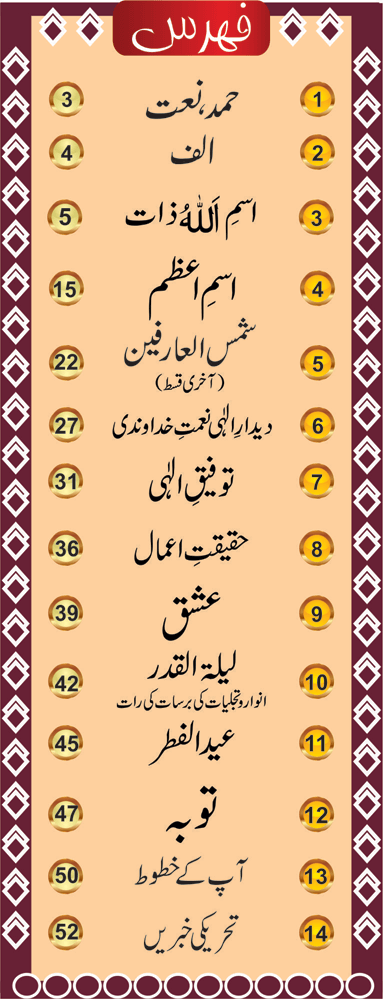 فہرس
1 حمد، نعت 3
2 الف 4
3 اسمِ اَللّٰہُ ذات 5
4 اسمِ اعظم 15
5 شمس العارفین 22
(آخری قسط)
6 دیدارِ الٰہی نعمتِ خداوندی 27
7 توفیقِ الٰہی 31
8 حقیقتِ اعمال 36
9 عشق 39
10 لیلۃ القدر 42
انوار و تجلیات کی برسات کی رات
11 عید الفطر 45
12 توبہ 47
13 آپ کے خطوط 50
14 تحریکی خبریں 52